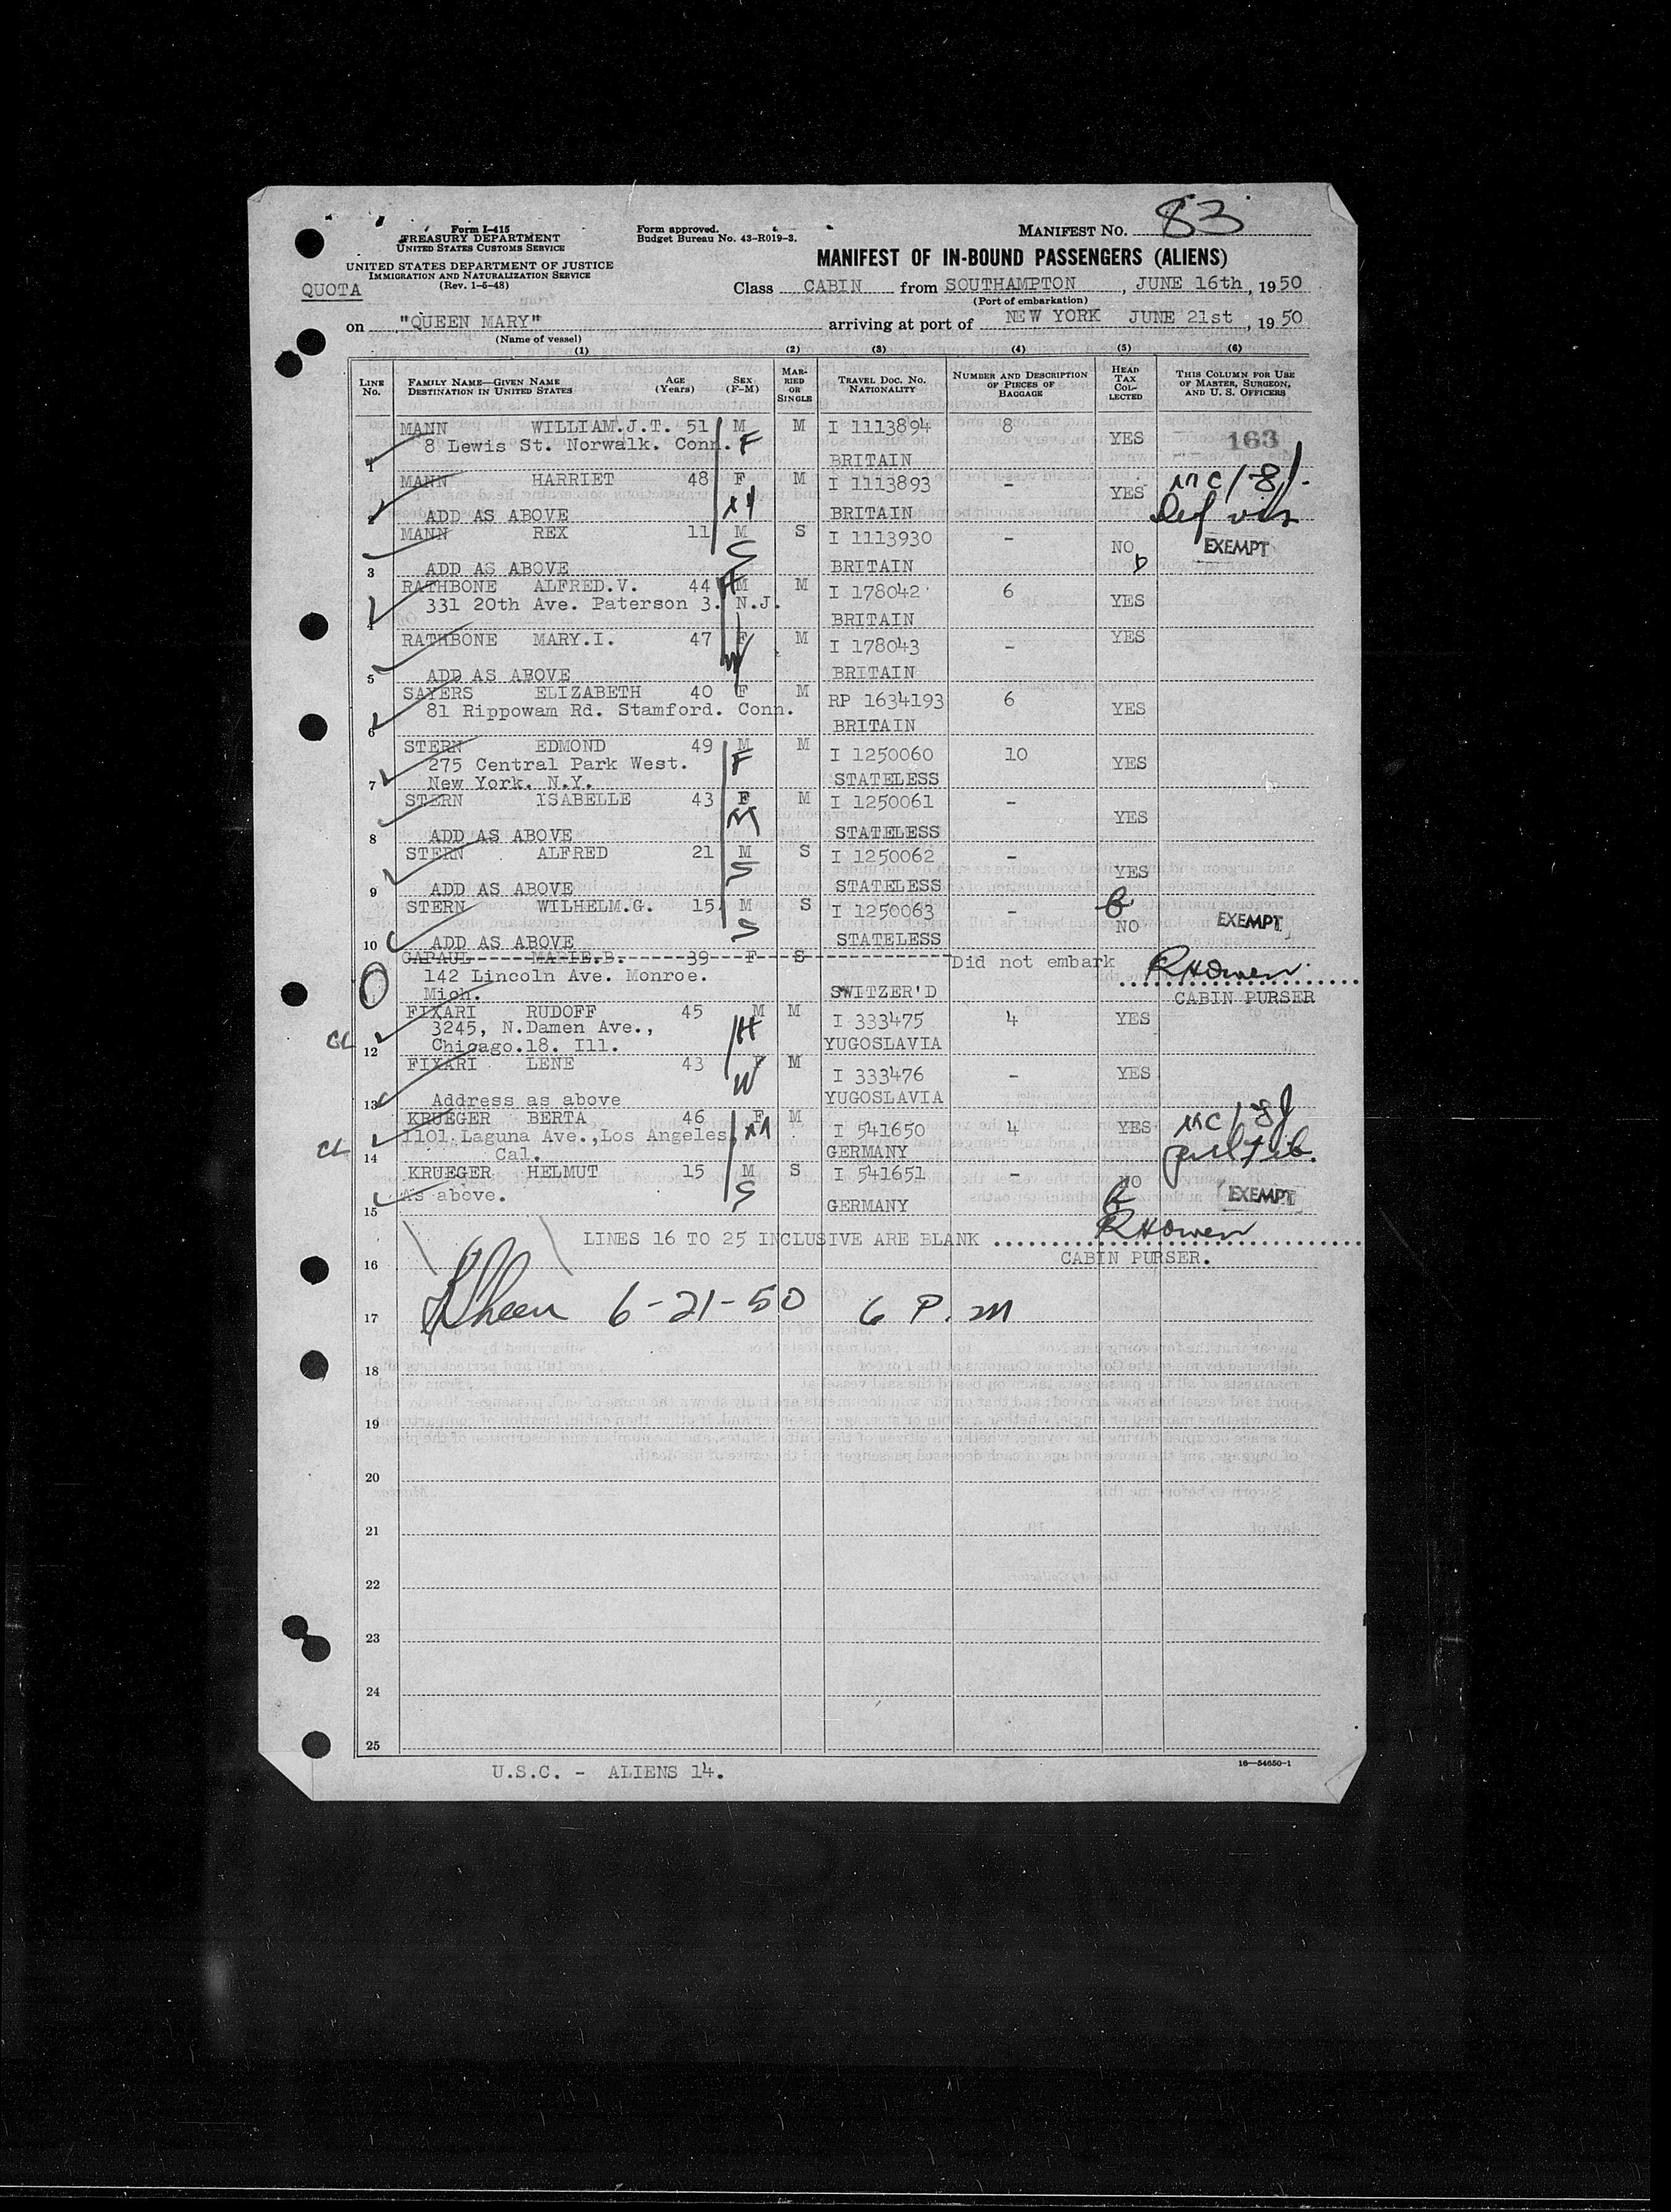 Form I-415
TREASURY DEPARTMENT
UNITED STATES CUSTOMS SERVICE
UNITED STATES DEPARTMENT OF JUSTICE
IMMIGRATION AND NATURALIZATION SERVICE
(Rev. 1-5-48)
QUOTA
Form approved.
Budget Bureau No. 43-R019-3.
MANIFEST NO. 83
MANIFEST OF IN-BOUND PASSENGERS (ALIENS)
Class CABIN from SOUTHAMPTON, JUNE 16th, 1950
(Port of embarkation)
on "QUEEN MARY" arriving at port of NEW YORK JUNE 21st, 1950
(Name of vessel)
(1) (2) (3) (4) (5) (6)
LINE No. FAMILY NAME—GIVEN NAME DESTINATION IN UNITED STATES AGE (Years) SEX (F-M) MARRIED OR SINGLE TRAVEL DOC. NO. NATIONALITY NUMBER AND DESCRIPTION OF PIECES OF BAGGAGE HEAD TAX COLLECTED THIS COLUMN FOR USE OF MASTER, SURGEON, AND U. S. OFFICERS
MANN WILLIAM.J.T. 51 M M I 1113894 8
8 Lewis St. Norwalk. Conn. F YES 163
1 BRITAIN
MANN HARRIET 48 F M I 1113893 - YES
2 ADD AS ABOVE BRITAIN
MANN REX 11 M S I 1113930 - NO EXEMPT
S
3 ADD AS ABOVE BRITAIN
RATHBONE ALFRED.V. 44 H M M I 178042 6
331 20th Ave. Paterson 3. N.J. YES
4 BRITAIN
RATHBONE MARY.I. 47 F M I 178043 - YES
W
5 ADD AS ABOVE BRITAIN
SAYERS ELIZABETH 40 F M RP 1634193 6
81 Rippowam Rd. Stamford. Conn. YES
6 BRITAIN
STERN EDMOND 49 M M I 1250060 10
275 Central Park West. F YES
7 New York. N.Y. STATELESS
STERN ISABELLE 43 F M I 1250061 -
M YES
8 ADD AS ABOVE STATELESS
STERN ALFRED 21 M S I 1250062 -
S YES
9 ADD AS ABOVE STATELESS
STERN WILHELM.G. 15 M S I 1250063 -
S NO EXEMPT
10 ADD AS ABOVE STATELESS
CAPAUL MARIE.B. 39 F S Did not embark RHOwen
142 Lincoln Ave. Monroe.
Mich. SWITZER'D CABIN PURSER
FIXARI RUDOFF 45 M M I 333475 4 YES
3245, N.Damen Ave., H
12 Chicago.18. Ill. YUGOSLAVIA
FIXARI LENE 43 F M I 333476 - YES
W
13 Address as above YUGOSLAVIA
KRUEGER BERTA 46 F M I 541650 4 YES
1101 Laguna Ave.,Los Angeles,
14 Cal. GERMANY
KRUEGER HELMUT 15 M S I 541651 - NO
As above. S EXEMPT
15 GERMANY
LINES 16 TO 25 INCLUSIVE ARE BLANK RHOwen
16 CABIN PURSER.
17 6-21-50 6 P.M
18
19
20
21
22
23
24
25
U.S.C. - ALIENS 14.
16—54650-1